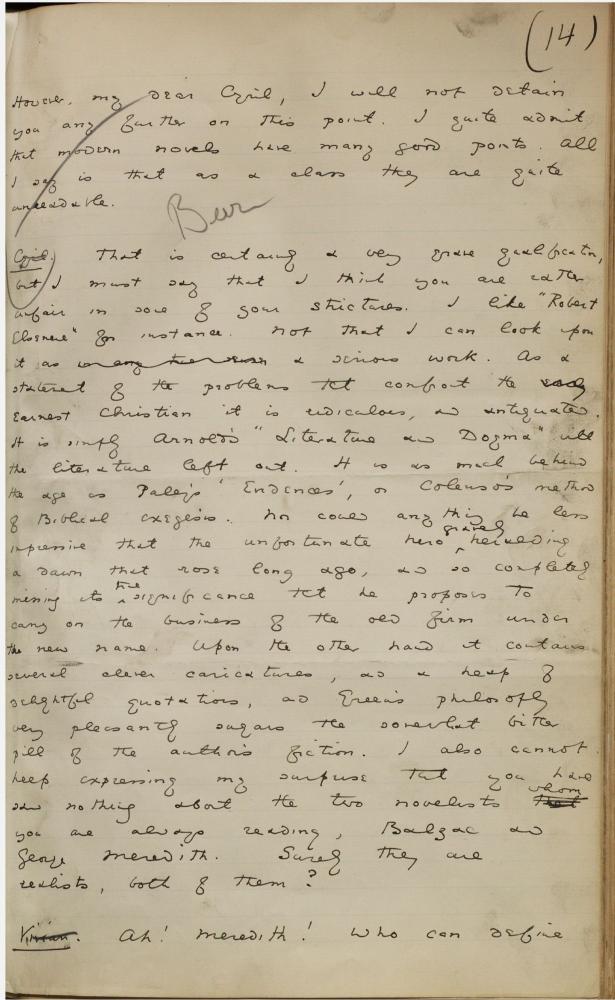 (14)
However, my dear Cyril, I will not detain
you any further on this point. I quite admit
that modern novels have many good points. All
I say is that as a class they are quite
unreadable.
Cyril. That is certainly a very grave qualification,
but I must say that I think you are rather
unfair in some of your strictures. I like "Robert
Elsmere" for instance. Not that I can look upon
it as a serious work. As a
statement of the problems that confront the
earnest Christian it is ridiculous, and antiquated.
It is simply Arnold's "Literature and Dogma" with
the literature left out. It is as much behind
the age as Paley's 'Evidences', or Colenso's method
of Biblical exegesis. Nor could anything be less
impressive than the unfortunate hero gravely heralding
a dawn that rose long ago, and so completely
missing its true significance that he proposes to
carry on the business of the old firm under
the new name. Upon the other hand it contains
several clever caricatures, and a heap of
delightful quotations, and Green's philosophy
very pleasantly sugars the somewhat bitter
pill of the author's fiction. I also cannot
help expressing my surprise that you have
said nothing about the two novelists whom
you are always reading, Balzac and
George Meredith. Surely they are
realists, both of them?
Vivian. Ah! Meredith! Who can define